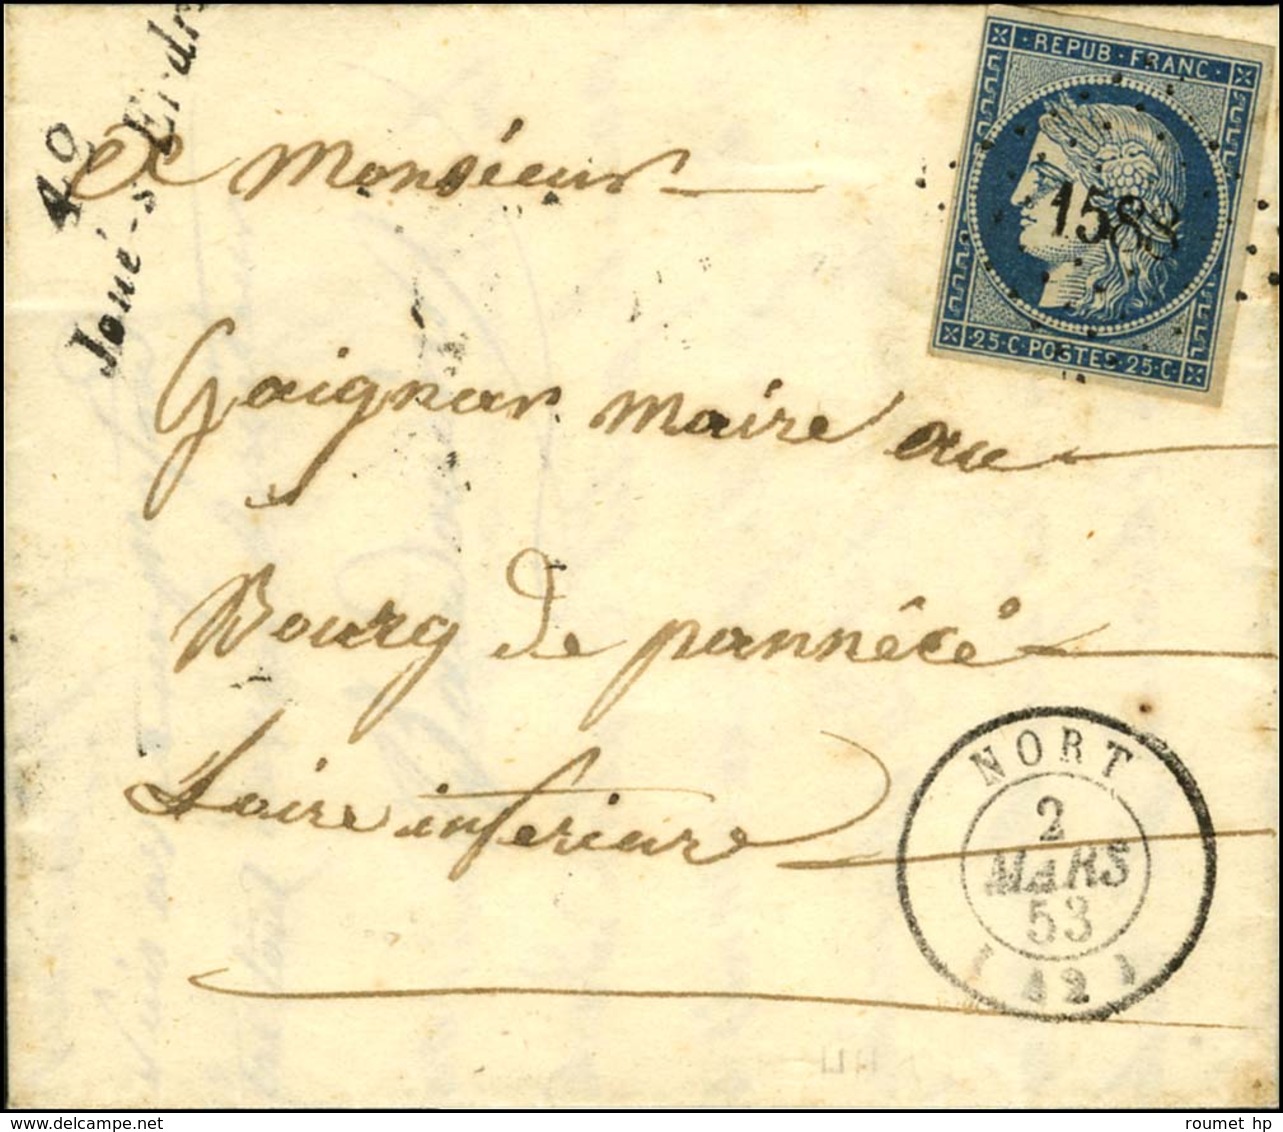 42
Joué-s-Erdr
REPUB·FRANC·
1588
·25·C·POSTES·25·C·
Monsieur
Gaignar maire au
Bourg de pannécé
Loire inferieure
NORT
2
MARS
53
(42)
roumet hp